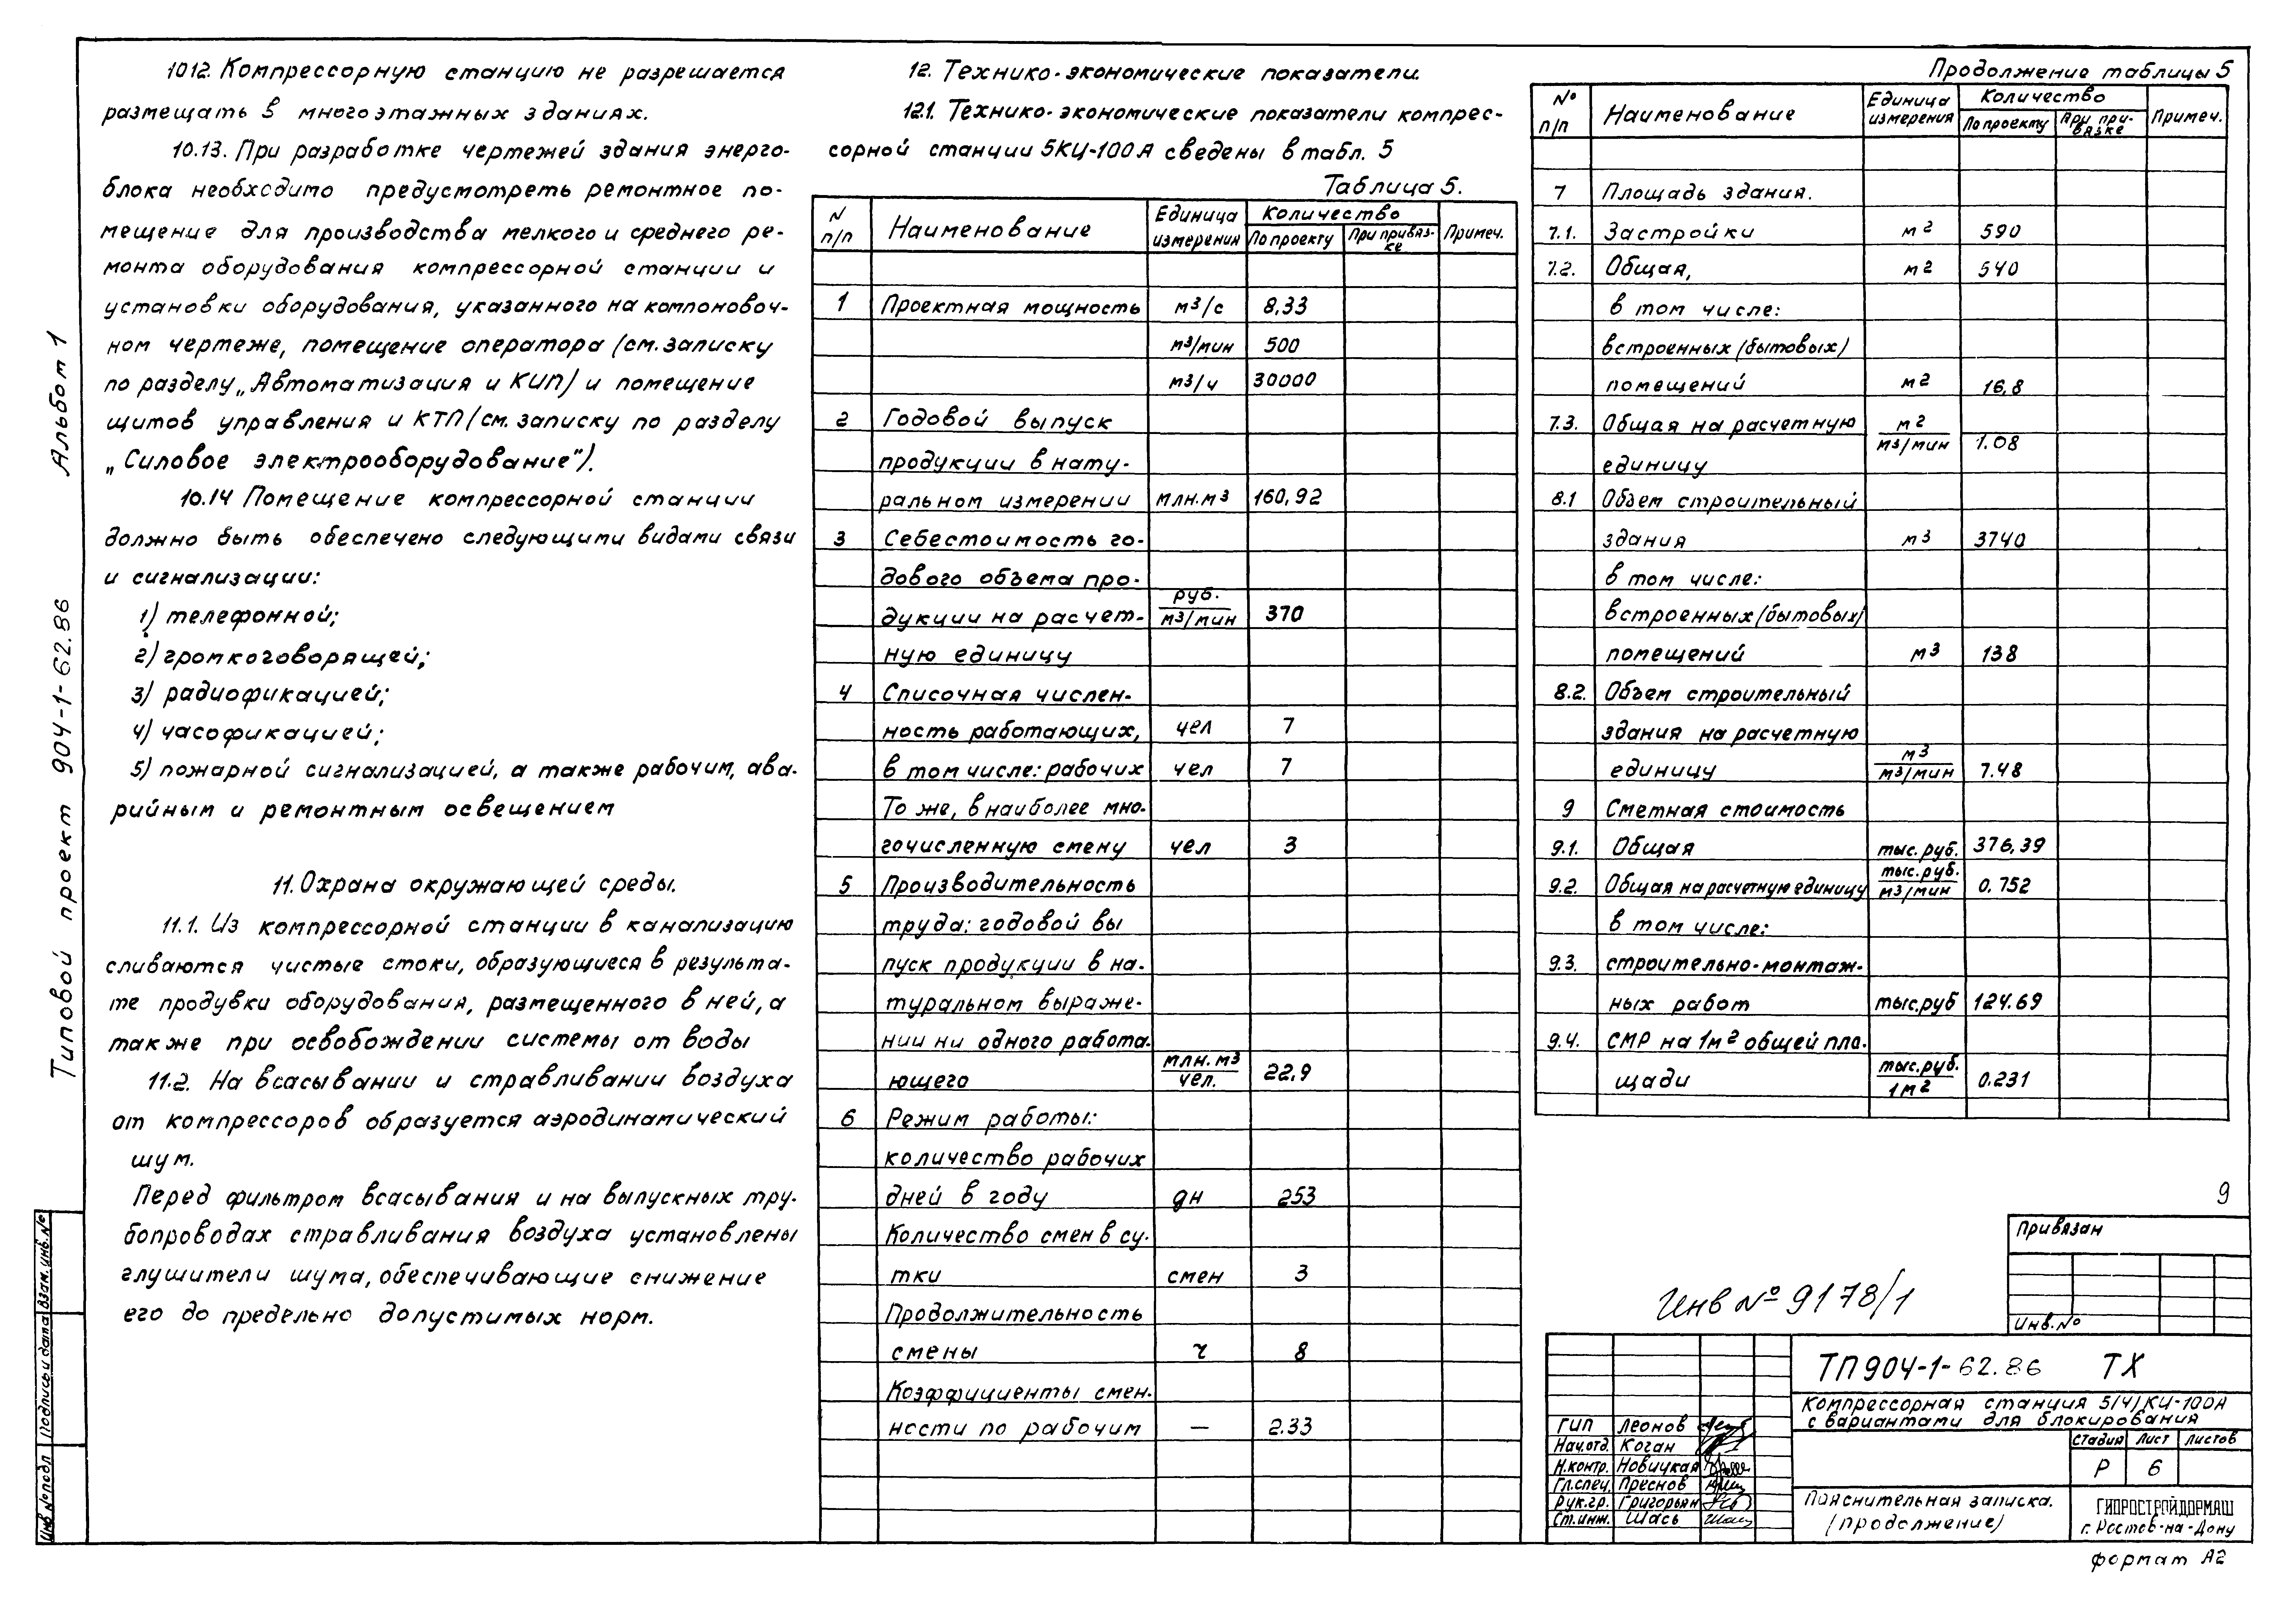 Типовой проект 904-1-62.86 Альбом 1
1012. Компрессорную станцию не разрешается
размещать в многоэтажных зданиях.
10.13. При разработке чертежей здания энерго-
блока необходимо предусмотреть ремонтное по-
мещение для производства мелкого и среднего ре-
монта оборудования компрессорной станции и
установки оборудования, указанного на компоновоч-
ном чертеже, помещение оператора (см. записку
по разделу „Автоматизация и КИП) и помещение
щитов управления и КТП (см. записку по разделу
„Силовое электрооборудование").
10.14 Помещение компрессорной станции
должно быть обеспечено следующими видами связи
и сигнализации:
1) телефонной;
2) громкоговорящей;
3) радиофикацией;
4) часофикацией;
5) пожарной сигнализацией, а также рабочим, ава-
рийным и ремонтным освещением
11. Охрана окружающей среды.
11.1. Из компрессорной станции в канализацию
сливаются чистые стоки, образующиеся в результа-
те продувки оборудования, размещенного в ней, а
также при освобождении системы от воды
11.2. На всасывании и стравливании воздуха
от компрессоров образуется аэродинамический
шум.
Перед фильтром всасывания и на выпускных тру-
бопроводах стравливания воздуха установлены
глушители шума, обеспечивающие снижение
его до предельно допустимых норм.
12. Технико-экономические показатели.
12.1. Технико-экономические показатели компрес-
сорной станции 5КЦ-100А сведены в табл. 5
Таблица 5.
N п/п Наименование Единица измерения Количество По проекту При привяз-ке Примеч.
1 Проектная мощность м³/с 8,33
м³/мин 500
м³/ч 30000
2 Годовой выпуск
продукции в нату-
ральном измерении млн.м³ 160,92
3 Себестоимость го-
дового объема про-
дукции на расчет- руб. м³/мин 370
ную единицу
4 Списочная числен-
ность работающих, чел 7
в том числе: рабочих чел 7
То же, в наиболее мно-
гочисленную смену чел 3
5 Производительность
труда: годовой вы
пуск продукции в на-
туральном выраже-
нии ни одного работа-
ющего млн.м³ чел. 22,9
6 Режим работы:
количество рабочих
дней в году дн 253
Количество смен в су-
тки смен 3
Продолжительность
смены ч 8
Коэффициенты смен-
ности по рабочим — 2.33
Продолжение таблицы 5
№ п/п Наименование Единица измерения Количество По проекту При при-вязке Примеч.
7 Площадь здания.
7.1. Застройки м² 590
7.2. Общая, м² 540
в том числе:
встроенных (бытовых)
помещений м² 16,8
7.3. Общая на расчетную м² м³/мин 1.08
единицу
8.1 Объем строительный
здания м³ 3740
в том числе:
встроенных (бытовых)
помещений м³ 138
8.2. Объем строительный
здания на расчетную
единицу м³ м³/мин 7.48
9 Сметная стоимость
9.1. Общая тыс.руб. 376,39
9.2. Общая на расчетную единицу тыс.руб. м³/мин 0.752
в том числе:
9.3. строительно-монтаж-
ных работ тыс.руб 124.69
9.4. СМР на 1м² общей пло-
щади тыс.руб. 1м² 0.231
9
Привязан
Инв.№
Инв № 9178/1
ТП904-1-62.86 ТХ
Компрессорная станция 5/4/КЦ-100А
с вариантами для блокирования
ГИП Леонов
Нач.отд. Коган
Н.контр. Новицкая
Гл.спец. Преснов
Рук.гр. Григорьян
Ст.инж. Шась
Стадия Лист Листов
Р 6
Пояснительная записка.
(продолжение)
ГИПРОСТРОЙДОРМАШ
г. Ростов-на-Дону
формат А2
Инв № подл Подпись и дата Взам. инв. №